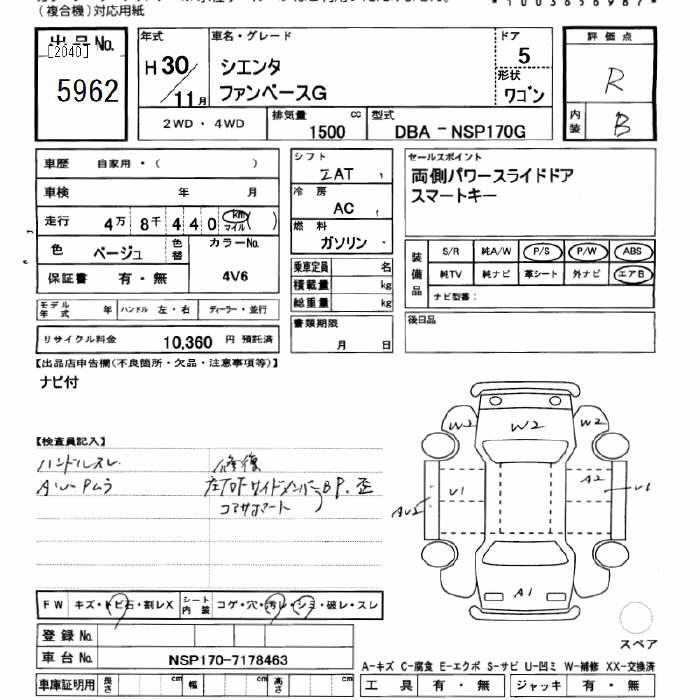 （複合機）対応用紙
出品No.
[2040]
5962
年式
H30/11月
車名・グレード
シエンタ
ファンベースG
ドア
5
形状
ワゴン
評価点
R
内装
B
2WD・4WD
排気量
1500
cc
型式
DBA-NSP170G
車歴 自家用・（ ）
車検 年 月
走行 4万 8千 440 km マイル ( )
色 ベージュ 色替
カラーNo.
4V6
保証書 有・無
モデル年式 年
ハンドル 左・右
ディーラー・並行
リサイクル料金 10,360 円 預託済
シフト
AT
冷房
AC
燃料
ガソリン
乗車定員 名
積載量 kg
総重量 kg
書類期限
月 日
セールスポイント
両側パワースライドドア
スマートキー
装備品
S/R 純A/W P/S P/W ABS
純TV 純ナビ 革シート 外ナビ エアB
ナビ型番：
後日品
【出品店申告欄（不良箇所・欠品・注意事項等）】
ナビ付
【検査員記入】
ハンドルスレ 修復
W2
W2
W2
U1
A2
A1
FW キズ・トビ石・割レX
シート内装 コゲ・穴・汚レ・シミ・破レ・スレ
登録No.
車台No. NSP170-7178463
車庫証明用 長さ cm 幅 cm 高さ cm
スペア
A-キズ C-腐食 E-エクボ S-サビ U-凹ミ W-補修 XX-交換済
工具 有・無 ジャッキ 有・無